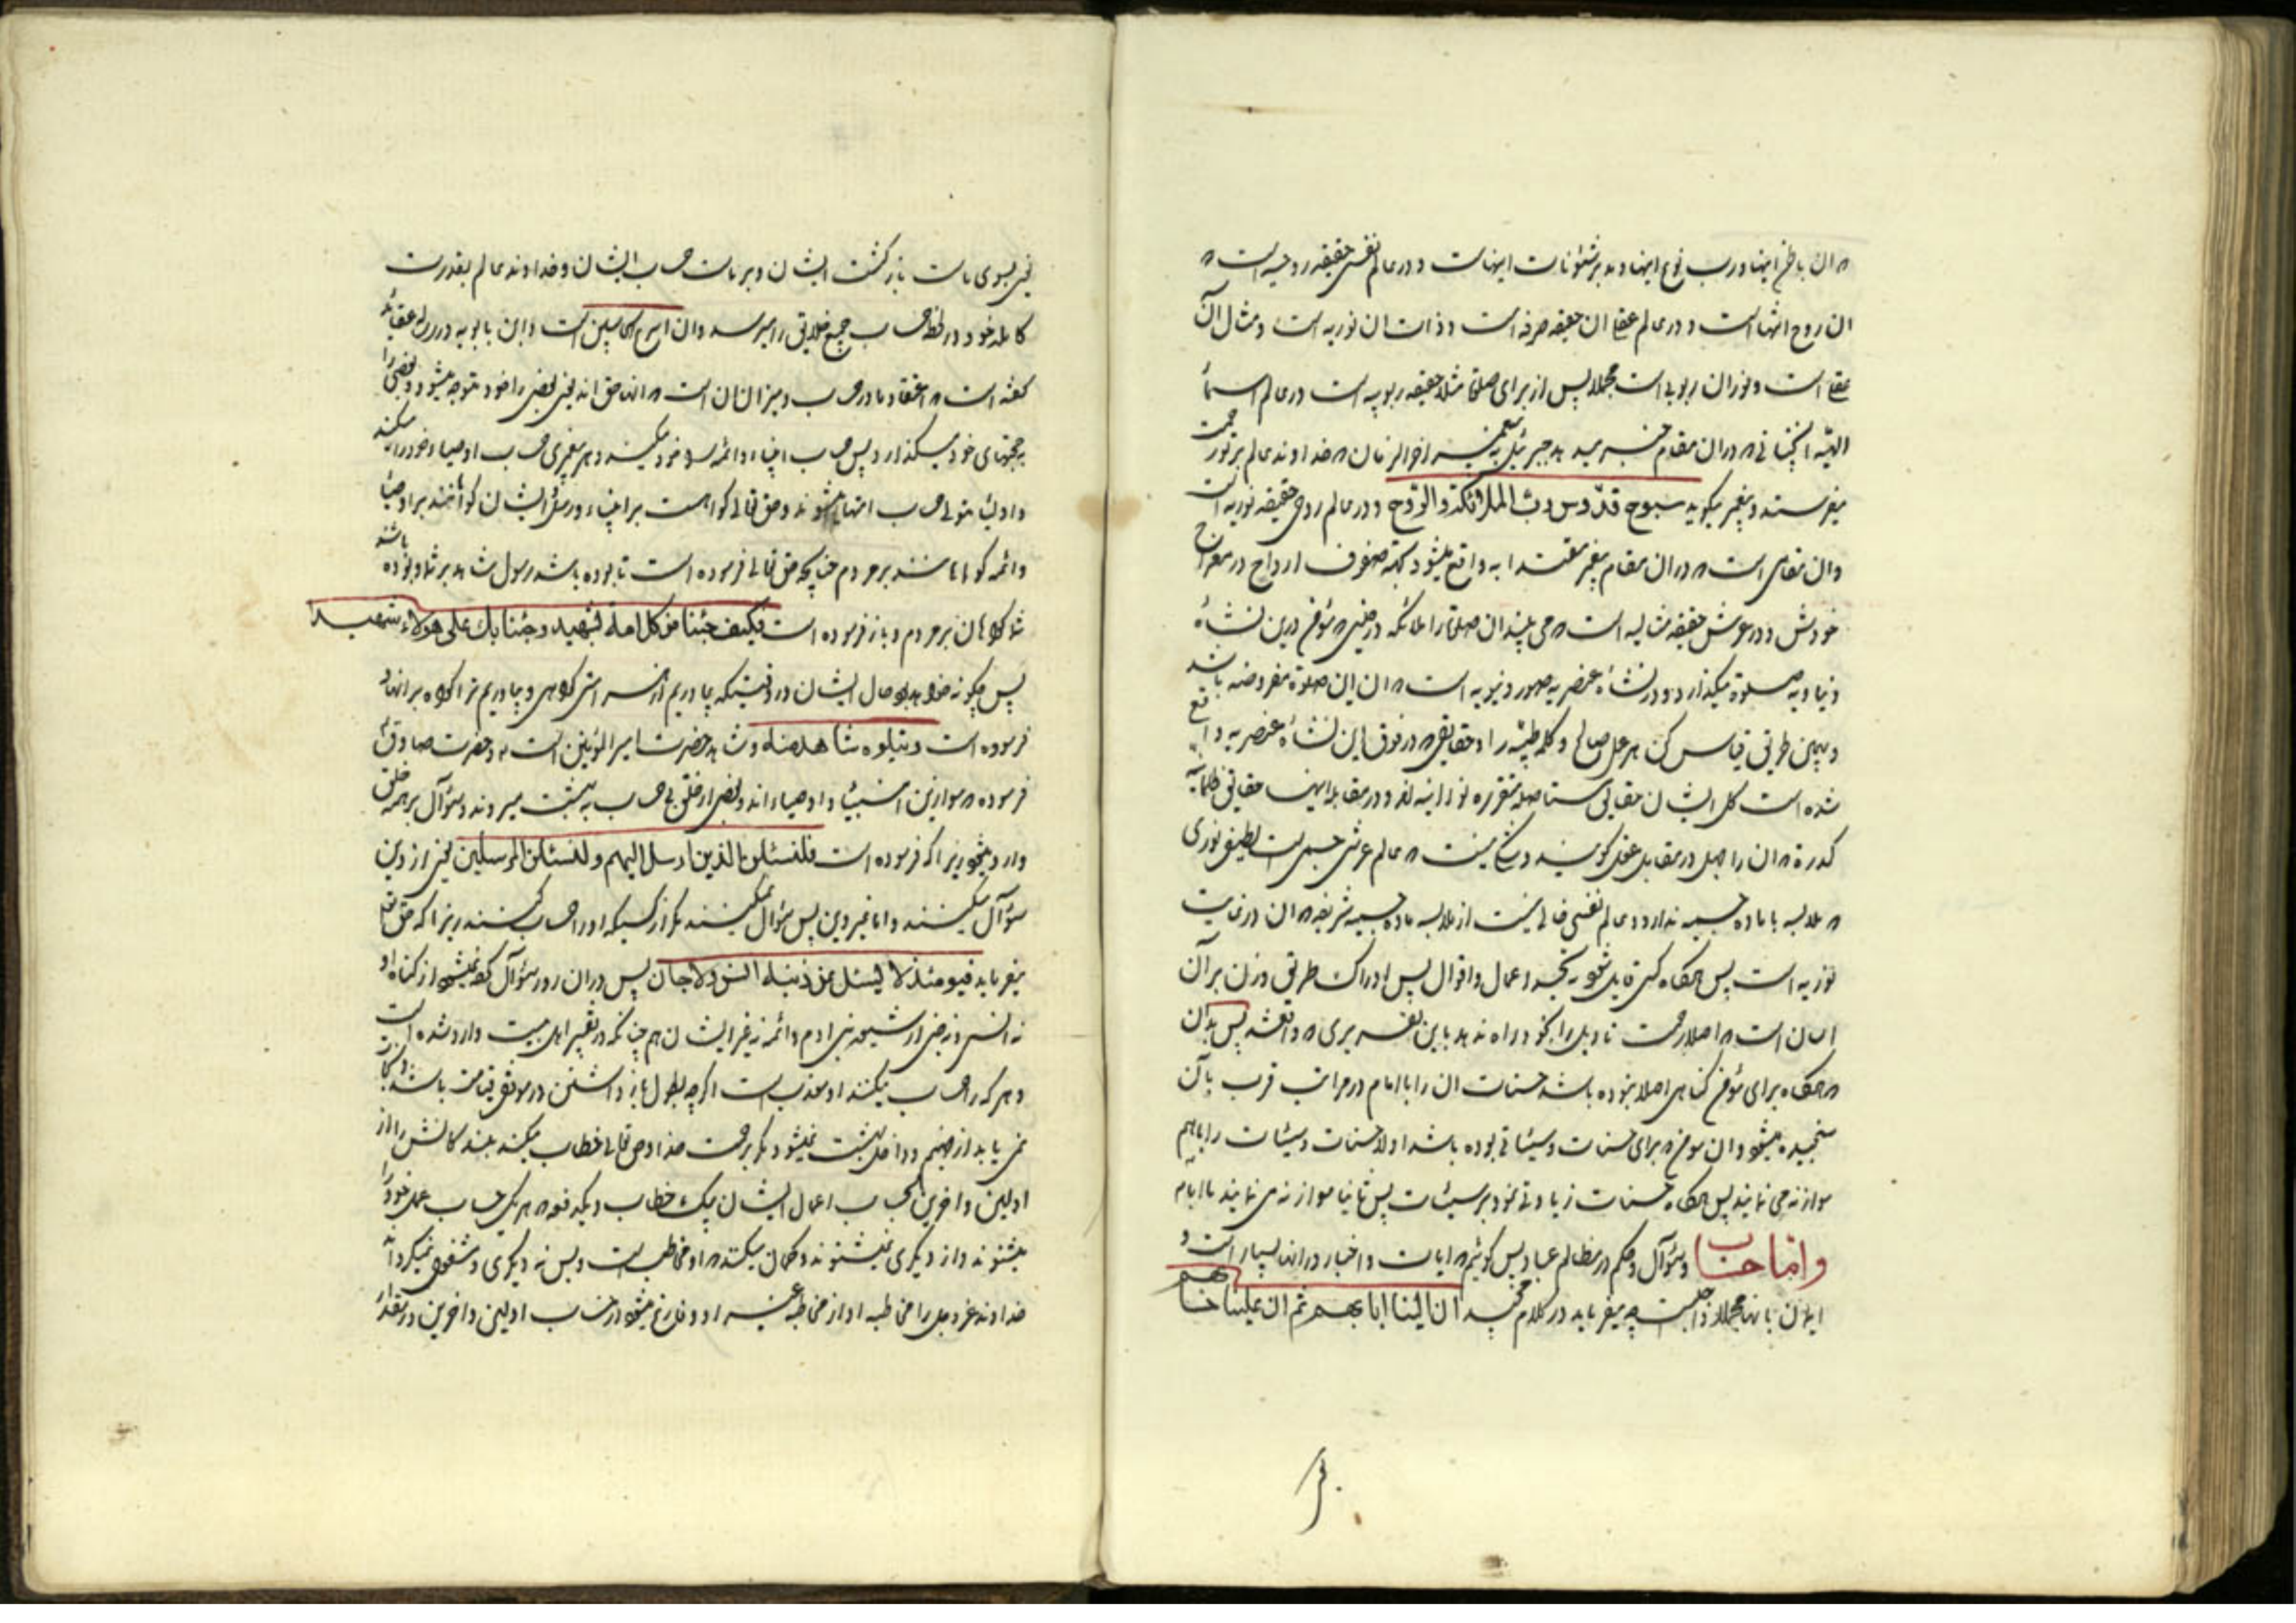 ان باطن اینها و رب نوع اینها و مدبر شئونات اینهاست و در عالم نفس حقیقه روحیه است
ان روح اینها است و در عالم عقل ان حقیقه صرفه است و ذات ان نوریه است و مثال آن
عقل است و نور ان ربوبی است مجملا پس از برای صلوة مثلا حقیقه ربوبیه است در عالم اسماء
الهیه در ان مقام جبرئیل به پیغمبر اخر الزمان خداوند عالم بر تو رحمت
میفرستد و پیغمبر میگوید سبوح قدّوس ربّ الملائکة والرّوح و در عالم روح حقیقه نوریه است
وان مقامی است در ان مقام پیغمبر مقتدا به واقع میشود بجمیع صفوف ارواح در معراج
خودش و در عرش حقیقه مثالیه است می بینند ان صلوة را ملائکه در حینی مؤمن درین نشأه
دنیاویه صلوة میگذارد و در نشأه عنصریه صور دنیویه است ان این صلوة مفروضه باشد
و بهمین طریق قیاس کن هر عمل صالح و کلمه طیّبه را و حقایقی در فوق این نشأه عنصریه واقع
شده است کل ایشان حقایق متاصله متقرره نورانیه اند و در مقابل اینهمه حقایق ظلمانیه
کدرة ان را جهل در مقابل عقل کویند و شک نیست عالم عرش جسمی است لطیف نوری
ملابسه با ماده جسمیه ندارد و عالم نفس خالی نیست از ملابسه ماده جسمیه شریفه ان در غایت
نوریه است پس هرکاه کسی قابل شود بتجسد اعمال و اقوال پس ادراک طریق وزن بر آن
اسان است اصلا زحمت تاویل را بخود راه ندهد باین تفسیری واقعشد پس بدان
هرکاه برای مؤمن کناهی اصلا نبوده باشد حسنات ان را با امام در مراتب قرب بآن
سنجیده میشود و ان مؤمن برای حسنات و سیئاتی بوده باشد اولا حسنات و سیئات را باهم
موازنه می نمایند پس هرکاه حسنات زیادتی نمود بر سیئات پس ثانیا موازنه می نمایند با امام
وامّا حساب و سؤال و حکم در مظالم عباد پس کوئیم ایات و اخبار در انها بسیار است و
ایمان بانها مجملا واجبست چه میفرماید در کلام مجید ان الینا ایابهم ثم ان علینا حسابهم
یعنی بسوی ماست بازکشت ایشان و بر ماست حساب ایشان و خداوند عالم بقدرت
کامله خود در لحظه حساب جمیع خلایق را میرسد وان اسرع الحاسبین است و ابن بابویه در رساله عقاید
کفته است اعتقاد ما در حساب و میزان ان است انها حق اند یعنی بعضی را خود متوجه میشود و بعضی را
بحجتهای خود میکذارد پس حساب انبیاء و ائمه را خود میکند و هر پیغمبری حساب اوصیاء خود را میکند
و اولیا متولی حساب امتها میشوند و حق تعالی کواهست بر انبیاء و رسل ایشان کواهند بر اوصیا
وائمه کواهانند بر مردم چنانچه حق تعالی فرموده است تا بوده باشد رسول شاهد بر شما و بوده باشد
شما کواهان بر مردم و باز فرموده است فکیف جئنا من کل امة بشهید وجئنا بک علی هولاء شهیدا
پس چکونه خواهد بود حال ایشان در وقتیکه بیاوریم از هر امتی کواهی و بیاوریم ترا کواه بر انها و
فرموده است ویتلوه شاهد منه و شاهد حضرت امیر المؤمنین است و حضرت صادق
فرموده موازین انبیاء و اوصیاء اند و بعضی از خلق بی حساب به بهشت میروند و سؤال بر همه خلق
وارد میشود زیرا که فرموده است فلنسئلن الذین ارسل الیهم ولنسئلن المرسلین یعنی از دین
سؤال میکنند و اما غیر دین پس سؤال نمیکنند مکر از کسیکه او را حساب کنند زیرا که حق تعالی
میفرماید فیومئذ لا یسئل عن ذنبه انس ولا جان پس در ان روز سؤال کرده نمیشود از کناه او
نه انس و نه جن از شیعه نبی ادم و ائمه نه غیر ایشان هم چنانکه در تفسیر اهل بیت وارد شده است
و هر که را حساب میکنند او معذب است اکرچه بطول باز داشتن در موقف قیامت باشد و نجات
نمی یابد از جهنم و داخل بهشت نمیشود مکر برحمت خدا و حق تعالی خطاب میکند بندکانش را از
اولین و اخرین بحساب اعمال ایشان بیک خطاب و یکدفعه هر یک حساب عمل خود را
میشنوند و از دیکری نمیشنوند و کمان میکنند او مخاطب است و بس نه دیکری و مشغول نمیکرداند
خداوند عز و جل را مخاطبه او از مخاطبه غیر او و فارغ میشود از حساب اولین و اخرین در مقدار